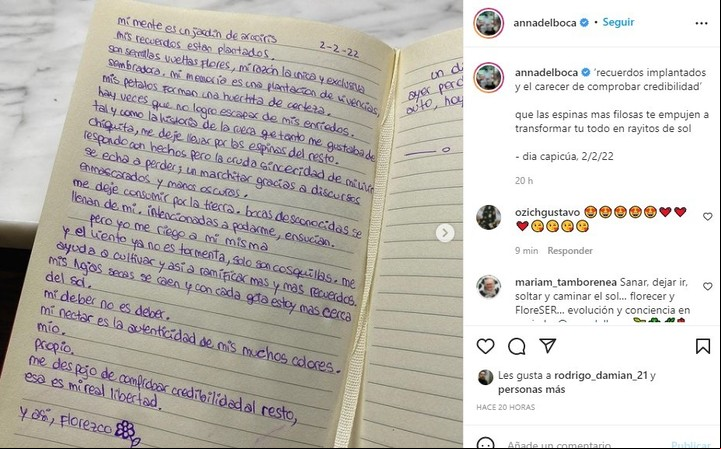 mi mente es un jardín de arcoiris
2-2-22
mis recuerdos estan plantados.
son semillas vueltas flores, mi razón la unica y exclusiva
sembradora. mi memoria es una plantacion de vivencias,
mis petalos forman una huertita de certeza.
hay veces que no logro escapar de mis enriedos.
tal y como la historia de la rueca que tanto me gustaba de
chiquita, me deje llevar por las espinas del resto.
respondo con hechos pero la cruda sinceridad de mi
se echa a perder; un marchitar gracias a discursos
enmascarados y manos oscuras.
me deje consumir por la tierra. bocas desconocidas se
llenan de mi. intencionadas a podarme, ensucian.
pero yo me riego a mi misma
y el viento ya no es tormenta, solo son cosquillas. me
ayuda a cultivar y asi a ramificar mas y mas recuerdos.
mis hojas secas se caen y con cada gota estoy mas cerca
del sol.
mi deber no es deber.
mi nectar es la autenticidad de mis muchos colores.
mio.
propio.
me despojo de comprobar credibilidad al resto,
esa es mi real libertad.
y asi, Florezco
un di
ayer perc
auto, hoy
annadelboca • Seguir
annadelboca 'recuerdos implantados
y el carecer de comprobar credibilidad'
que las espinas mas filosas te empujen a
transformar tu todo en rayitos de sol
- dia capicúa, 2/2/22
20 h
ozichgustavo 😍😍😍😍😍❤️❤️
❤️😘😘😘😘
9 min Responder
mariam_tamborenea Sanar, dejar ir,
soltar y caminar el sol... florecer y
FloreSER... evolución y conciencia en
Les gusta a rodrigo_damian_21 y
personas más
HACE 20 HORAS
Añade un comentario...
Publicar